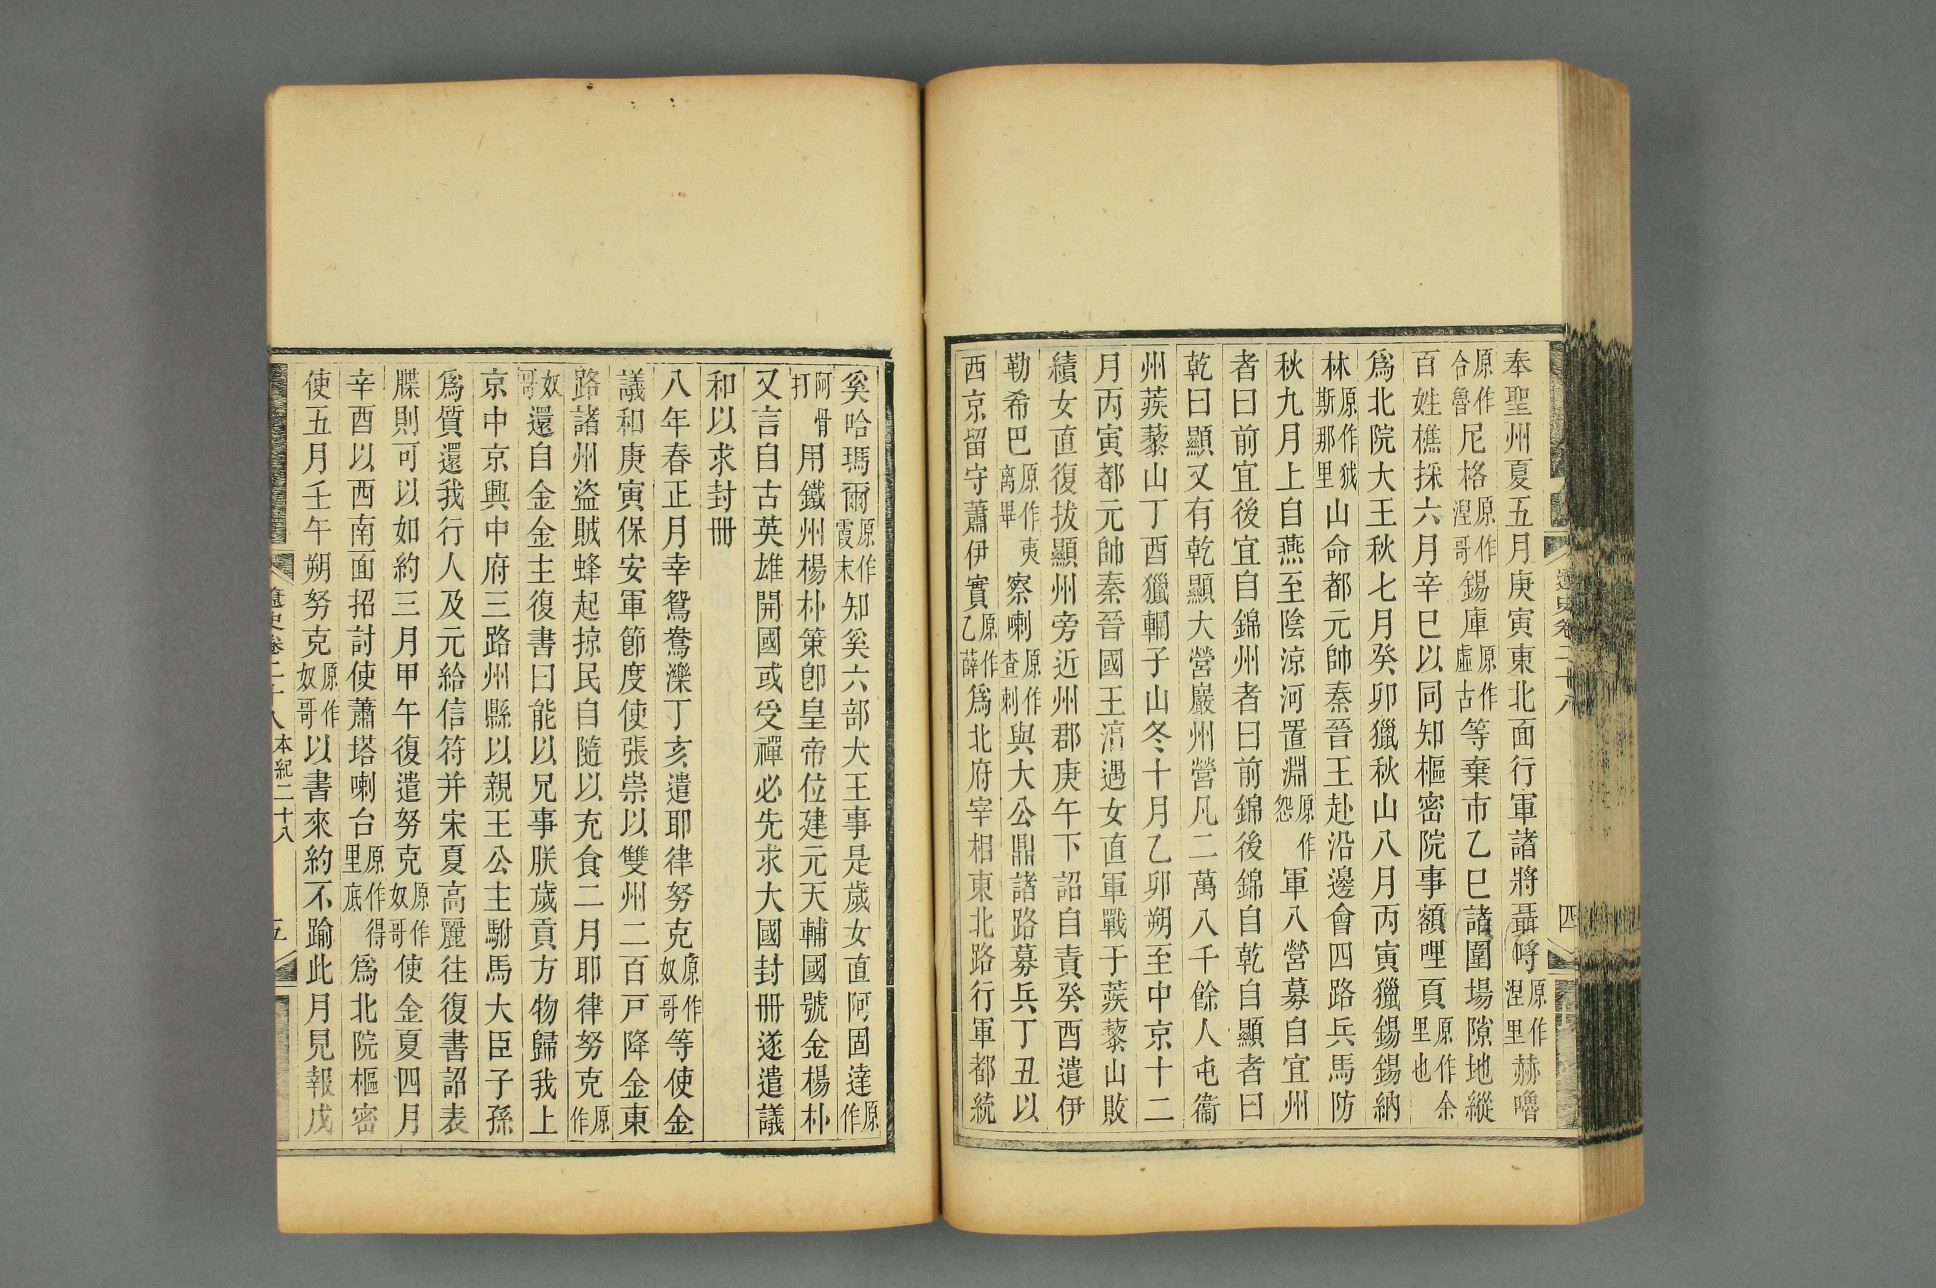 遼史卷二十八
四
奉聖州夏五月庚寅東北面行軍諸將聶哷原作涅里赫嚕
原作合魯尼格原作涅哥錫庫原作虛古等棄市乙巳諸圍場隙地縱
百姓樵採六月辛巳以同知樞密院事額哩頁原作余里也
爲北院大王秋七月癸卯獵秋山八月丙寅獵錫錫納
林原作狘斯那里山命都元帥秦晉王赴沿邊會四路兵馬防
秋九月上自燕至陰涼河置淵原作怨軍八營募自宜州
者曰前宜後宜自錦州者曰前錦後錦自乾自顯者曰
乾曰顯又有乾顯大營巖州營凡二萬八千餘人屯衞
州蒺藜山丁酉獵輞子山冬十月乙卯朔至中京十二
月丙寅都元帥秦晉國王湻遇女直軍戰于蒺藜山敗
績女直復拔顯州旁近州郡庚午下詔自責癸酉遣伊
勒希巴原作夷离畢察喇原作查剌與大公鼎諸路募兵丁丑以
西京留守蕭伊實原作乙薛爲北府宰相東北路行軍都統
奚哈瑪爾原作霞末知奚六部大王事是歲女直阿固達原作
阿骨打用鐵州楊朴策卽皇帝位建元天輔國號金楊朴
又言自古英雄開國或受禪必先求大國封冊遂遣議
和以求封冊
八年春正月幸鴛鴦濼丁亥遣耶律努克原作奴哥等使金
議和庚寅保安軍節度使張崇以雙州二百戸降金東
路諸州盜賊蜂起掠民自隨以充食二月耶律努克原作
奴哥還自金金主復書曰能以兄事朕歲貢方物歸我上
京中京興中府三路州縣以親王公主駙馬大臣子孫
爲質還我行人及元給信符并宋夏高麗往復書詔表
牒則可以如約三月甲午復遣努克原作奴哥使金夏四月
辛酉以西南面招討使蕭塔喇台原作得里底爲北院樞密
使五月壬午朔努克原作奴哥以書來約不踰此月見報戊
遼史卷二十八
本紀二十八
五